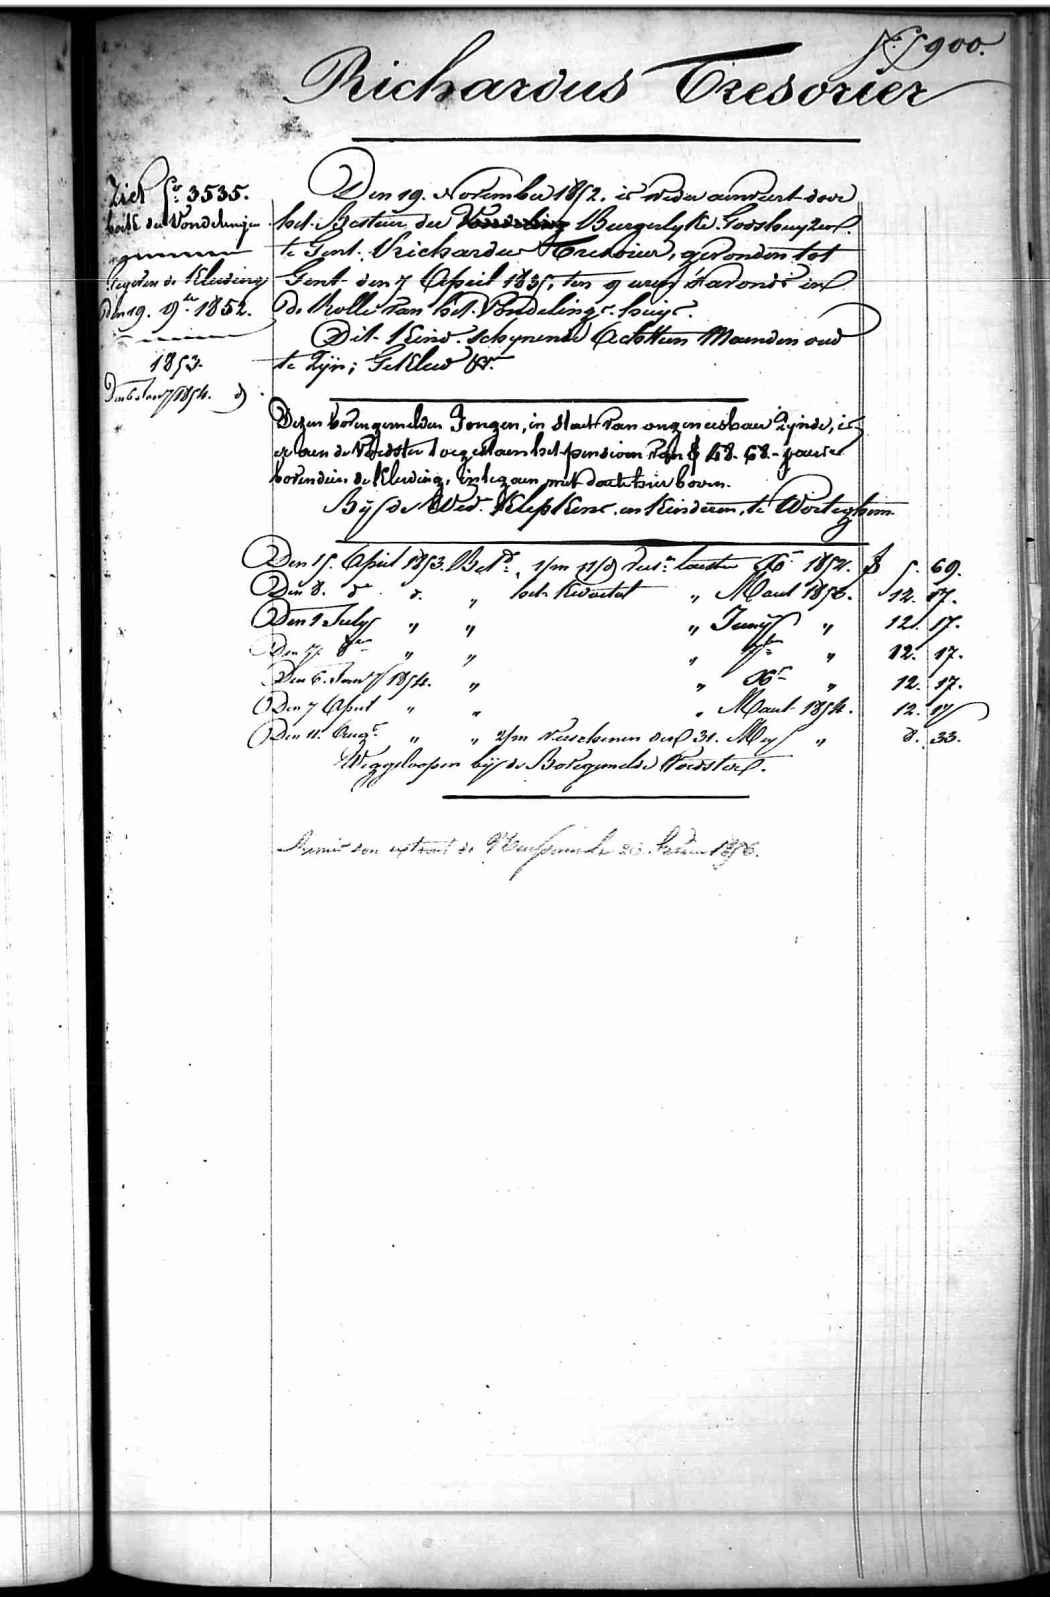 N.º 5900.
Richardus Tresorier
Ziet N.º 3535.
boek der Vondelingen
Gegeven de Kleeding
den 19. 9.bre 1852.
1853.
Den 6 Jan.y 1854. d.
Den 19. November 1852. is weder aenveert door
het Bestuur der Vondeling Burgerlyke Godshuyzen
te Gent. Richardus Tresorier, gevonden tot
Gent den 7 April 1835, ten 9 uren s'avonds in
de Rolle van het Vondelings-huys.
Dit Kind schynende Achttien Maenden oud
te Zyn; Gekleed &a.
Dezen bovengemelden Jongen, in staet van ongeneesbaer zynde, is
er aen de Voedster toegestaen het pensioen van £ 48. 68. 's jaers
bovendien de Kleeding, ingegaen met date hier boven.
By de Wed. Klepkens en Kinderen, te Worteghem
Den 15. April 1853. Bet.d 1/m 11/d laetste X.r 1852. £ 5. 69.
Den 8. d.o d.o " het Kwartael " Maert 1853. 12. 17.
Den 1 July " " " Juny " 12. 17.
Den 5. 8.bre " " " 7.bre " 12. 17.
Den 6. Jan.y 1854. " " X.r " 12. 17.
Den 7 April " " " Maert 1854. 12. 17
Den 11. Aug.t " " 2/m verschenen den 31. Mey " 8. 33.
Weggeloopen by de Bovegemelde Voedster.
Remis son extrait de Naissance le 26 1856.